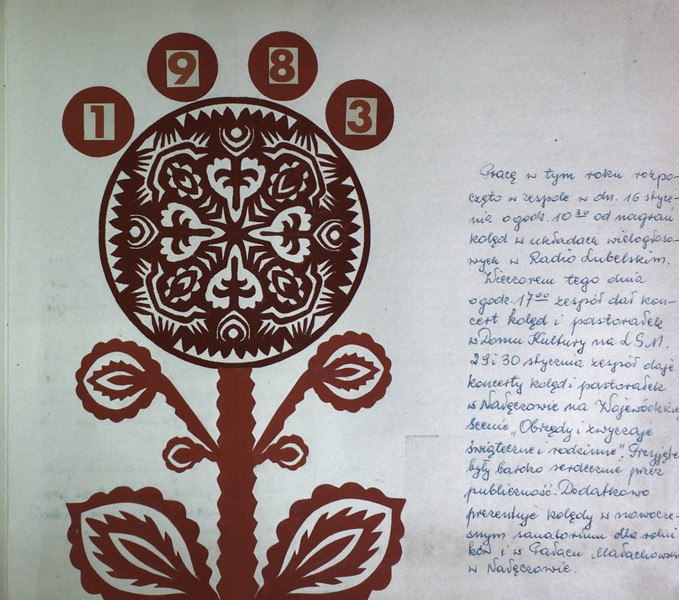 1983
Pracę w tym roku rozpo-
częto w zespole w dn. 16 stycz-
nia o godz. 10 30 od nagrań
kolęd w układach wielogłoso-
wych w Radio Lubelskim.
Wieczorem tego dnia
o godz. 17 00 zespół dał kon-
cert kolęd i pastorałek
w Domu Kultury na L.S.M.
29 i 30 stycznia zespół daje
koncerty kolęd i pastorałek
w Nałęczowie na Wojewódzkiej
Scenie „Obrzędy i zwyczaje
świąteczne i rodzinne". Przyjęte
były bardzo serdecznie przez
publiczność. Dodatkowo
prezentuje kolędy w nowocze-
snym sanatorium dla rolni
ków i w Pałacu Małachows
w Nałęczowie.